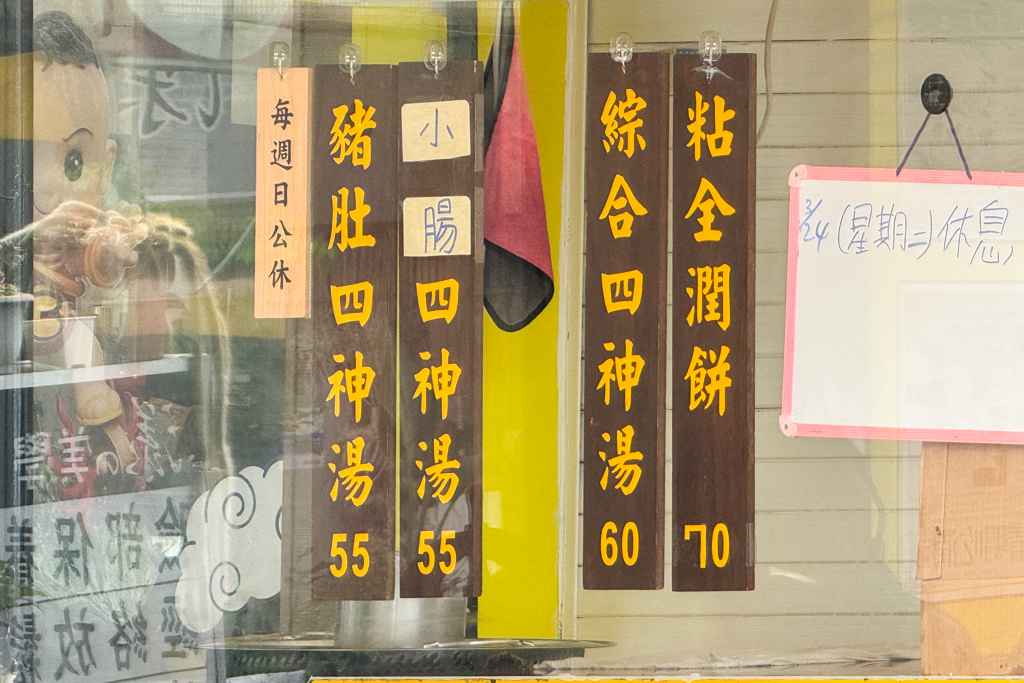 每週日公休
豬肚四神湯 55
小腸四神湯 55
綜合四神湯 60
粘全潤餅 70
3/24 (星期二) 休息
部保
絡放